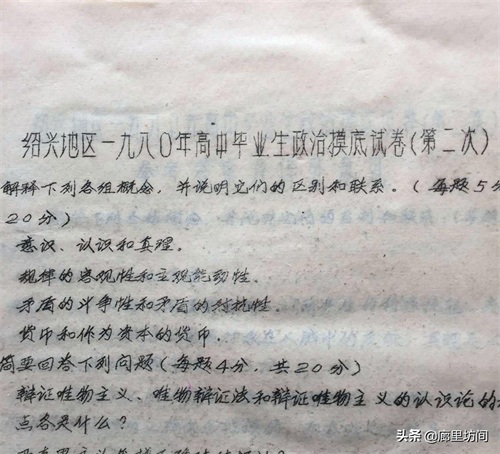 绍兴地区一九八〇年高中毕业生政治摸底试卷(第二次)
解释下列各组概念，并说明它们的区别和联系。(每题5分
20分)
意识、认识和真理。
规律的客观性和主观能动性、
矛盾的斗争性和矛盾的对抗性、
货币和作为资本的货币、
简要回答下列问题(每题4分，共20分)
辩证唯物主义、唯物辩证法和辩证唯物主义的认识论的
点各是什么？
头条 @廊里坊间